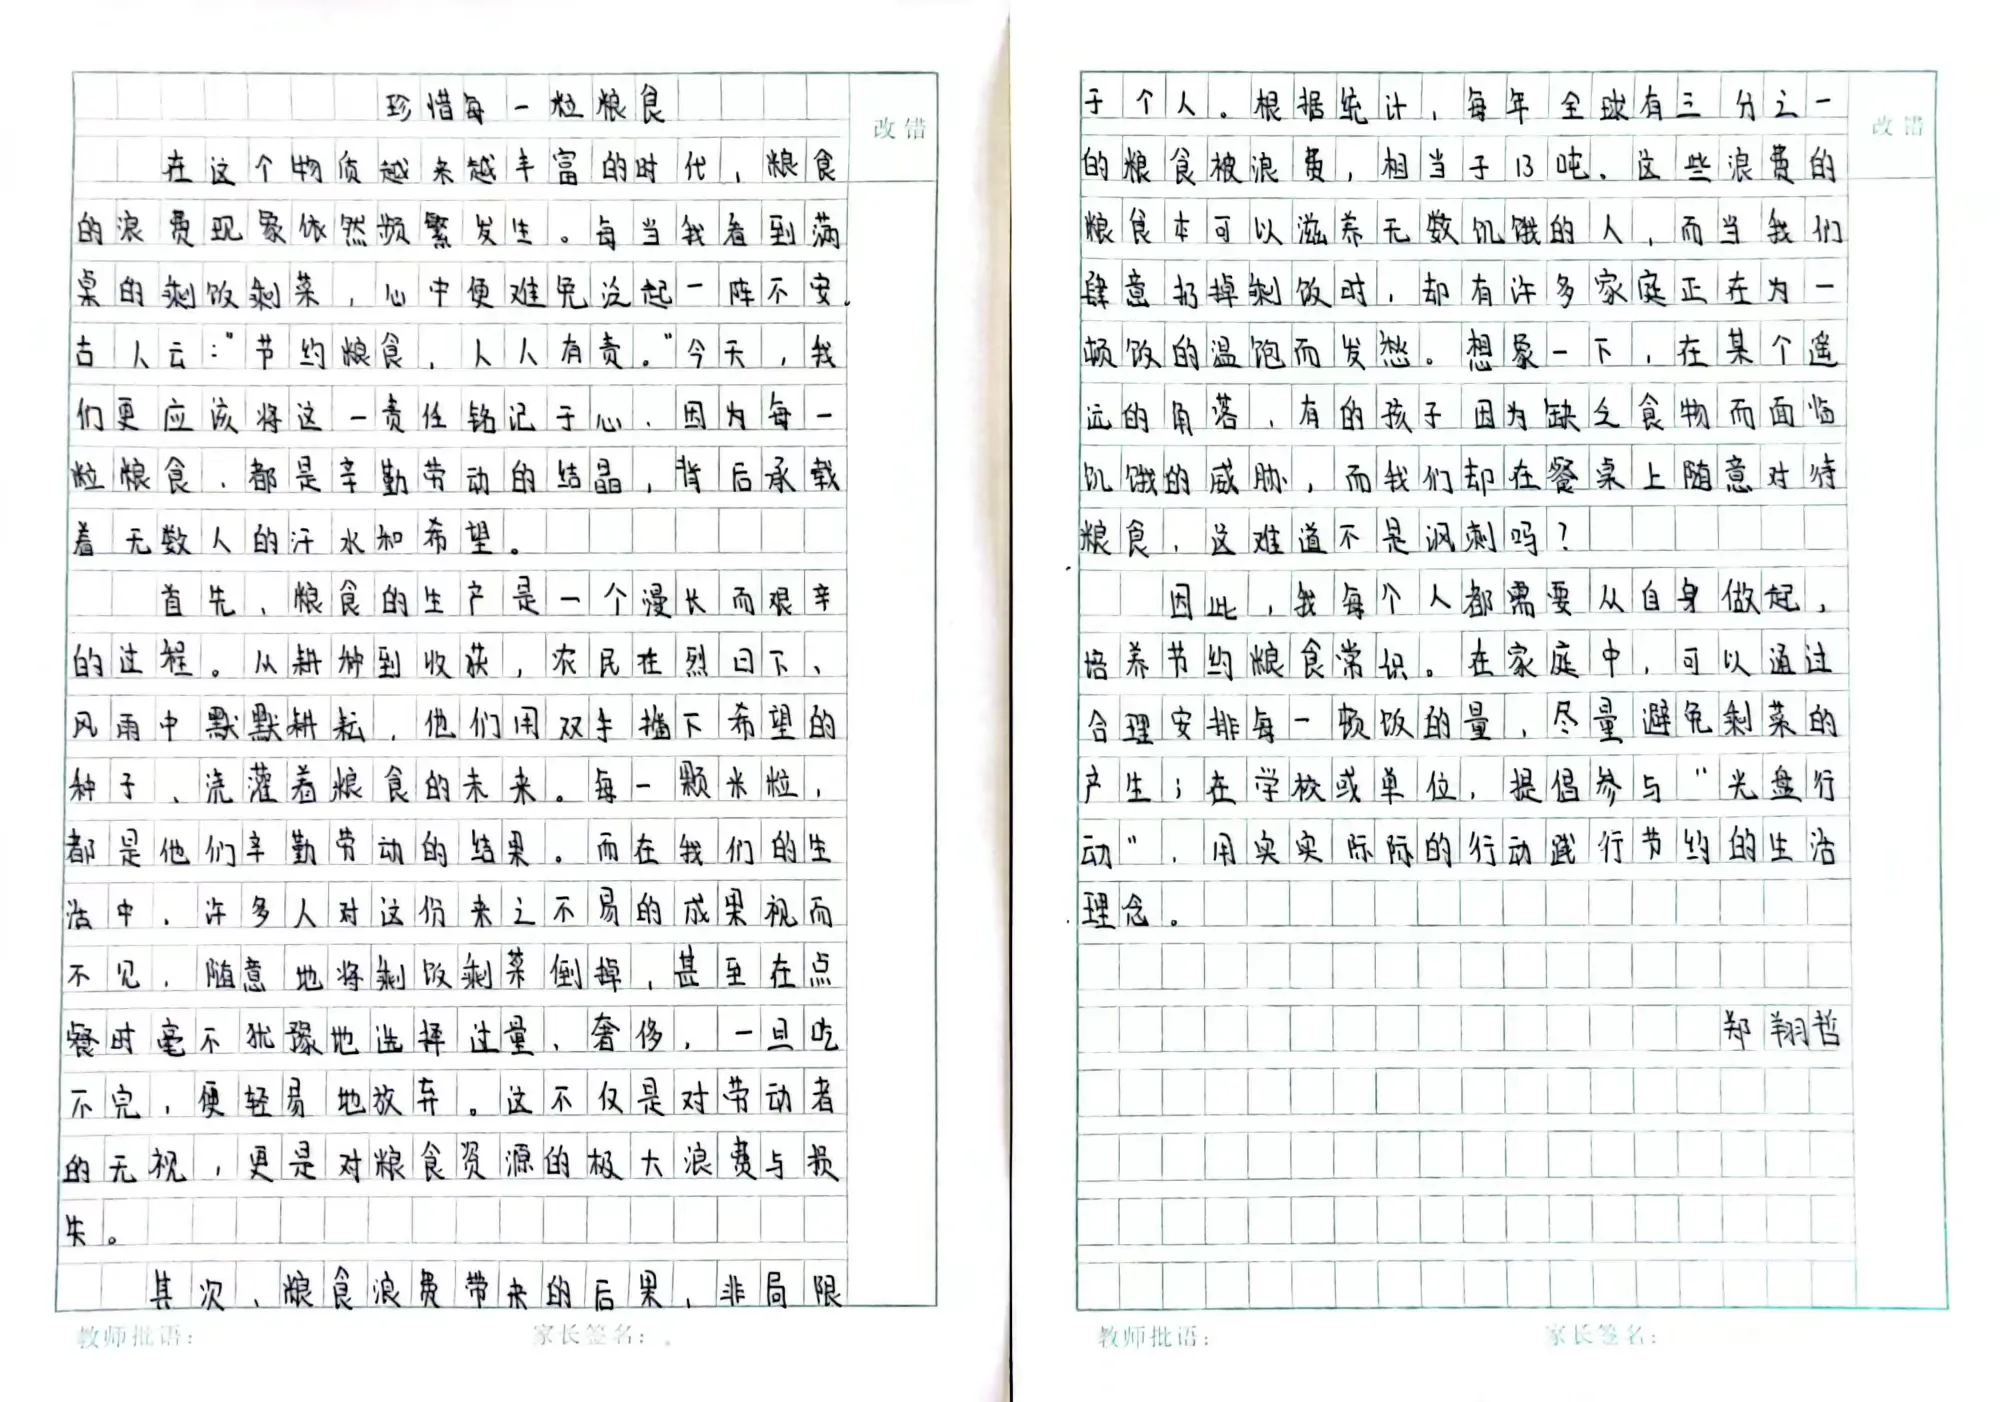 珍惜每一粒粮食
改错
在这个物质越来越丰富的时代，粮食
的浪费现象依然频繁发生。每当我看到满
桌的剩饭剩菜，心中便难免泛起一阵不安。
古人云：“节约粮食，人人有责。”今天，我
们更应该将这一责任铭记于心，因为每一
粒粮食，都是辛勤劳动的结晶，背后承载
着无数人的汗水和希望。
首先，粮食的生产是一个漫长而艰辛
的过程。从耕种到收获，农民在烈日下、
风雨中默默耕耘，他们用双手播下希望的
种子、浇灌着粮食的未来。每一颗米粒，
都是他们辛勤劳动的结果。而在我们的生
活中，许多人对这份来之不易的成果视而
不见，随意地将剩饭剩菜倒掉，甚至在点
餐时毫不犹豫地选择过量、奢侈，一旦吃
不完，便轻易地放弃。这不仅是对劳动者
的无视，更是对粮食资源的极大浪费与损
失。
其次，粮食浪费带来的后果，非局限
教师批语： 家长签名：
于个人。根据统计，每年全球有三分之一
改错
的粮食被浪费，相当于13吨。这些浪费的
粮食本可以滋养无数饥饿的人，而当我们
肆意扔掉剩饭时，却有许多家庭正在为一
顿饭的温饱而发愁。想象一下，在某个遥
远的角落，有的孩子因为缺乏食物而面临
饥饿的威胁，而我们却在餐桌上随意对待
粮食，这难道不是讽刺吗？
因此，我每个人都需要从自身做起，
培养节约粮食常识。在家庭中，可以通过
合理安排每一顿饭的量，尽量避免剩菜的
产生；在学校或单位，提倡参与“光盘行
动”，用实实际际的行动践行节约的生活
理念。
郑翔哲
教师批语： 家长签名：